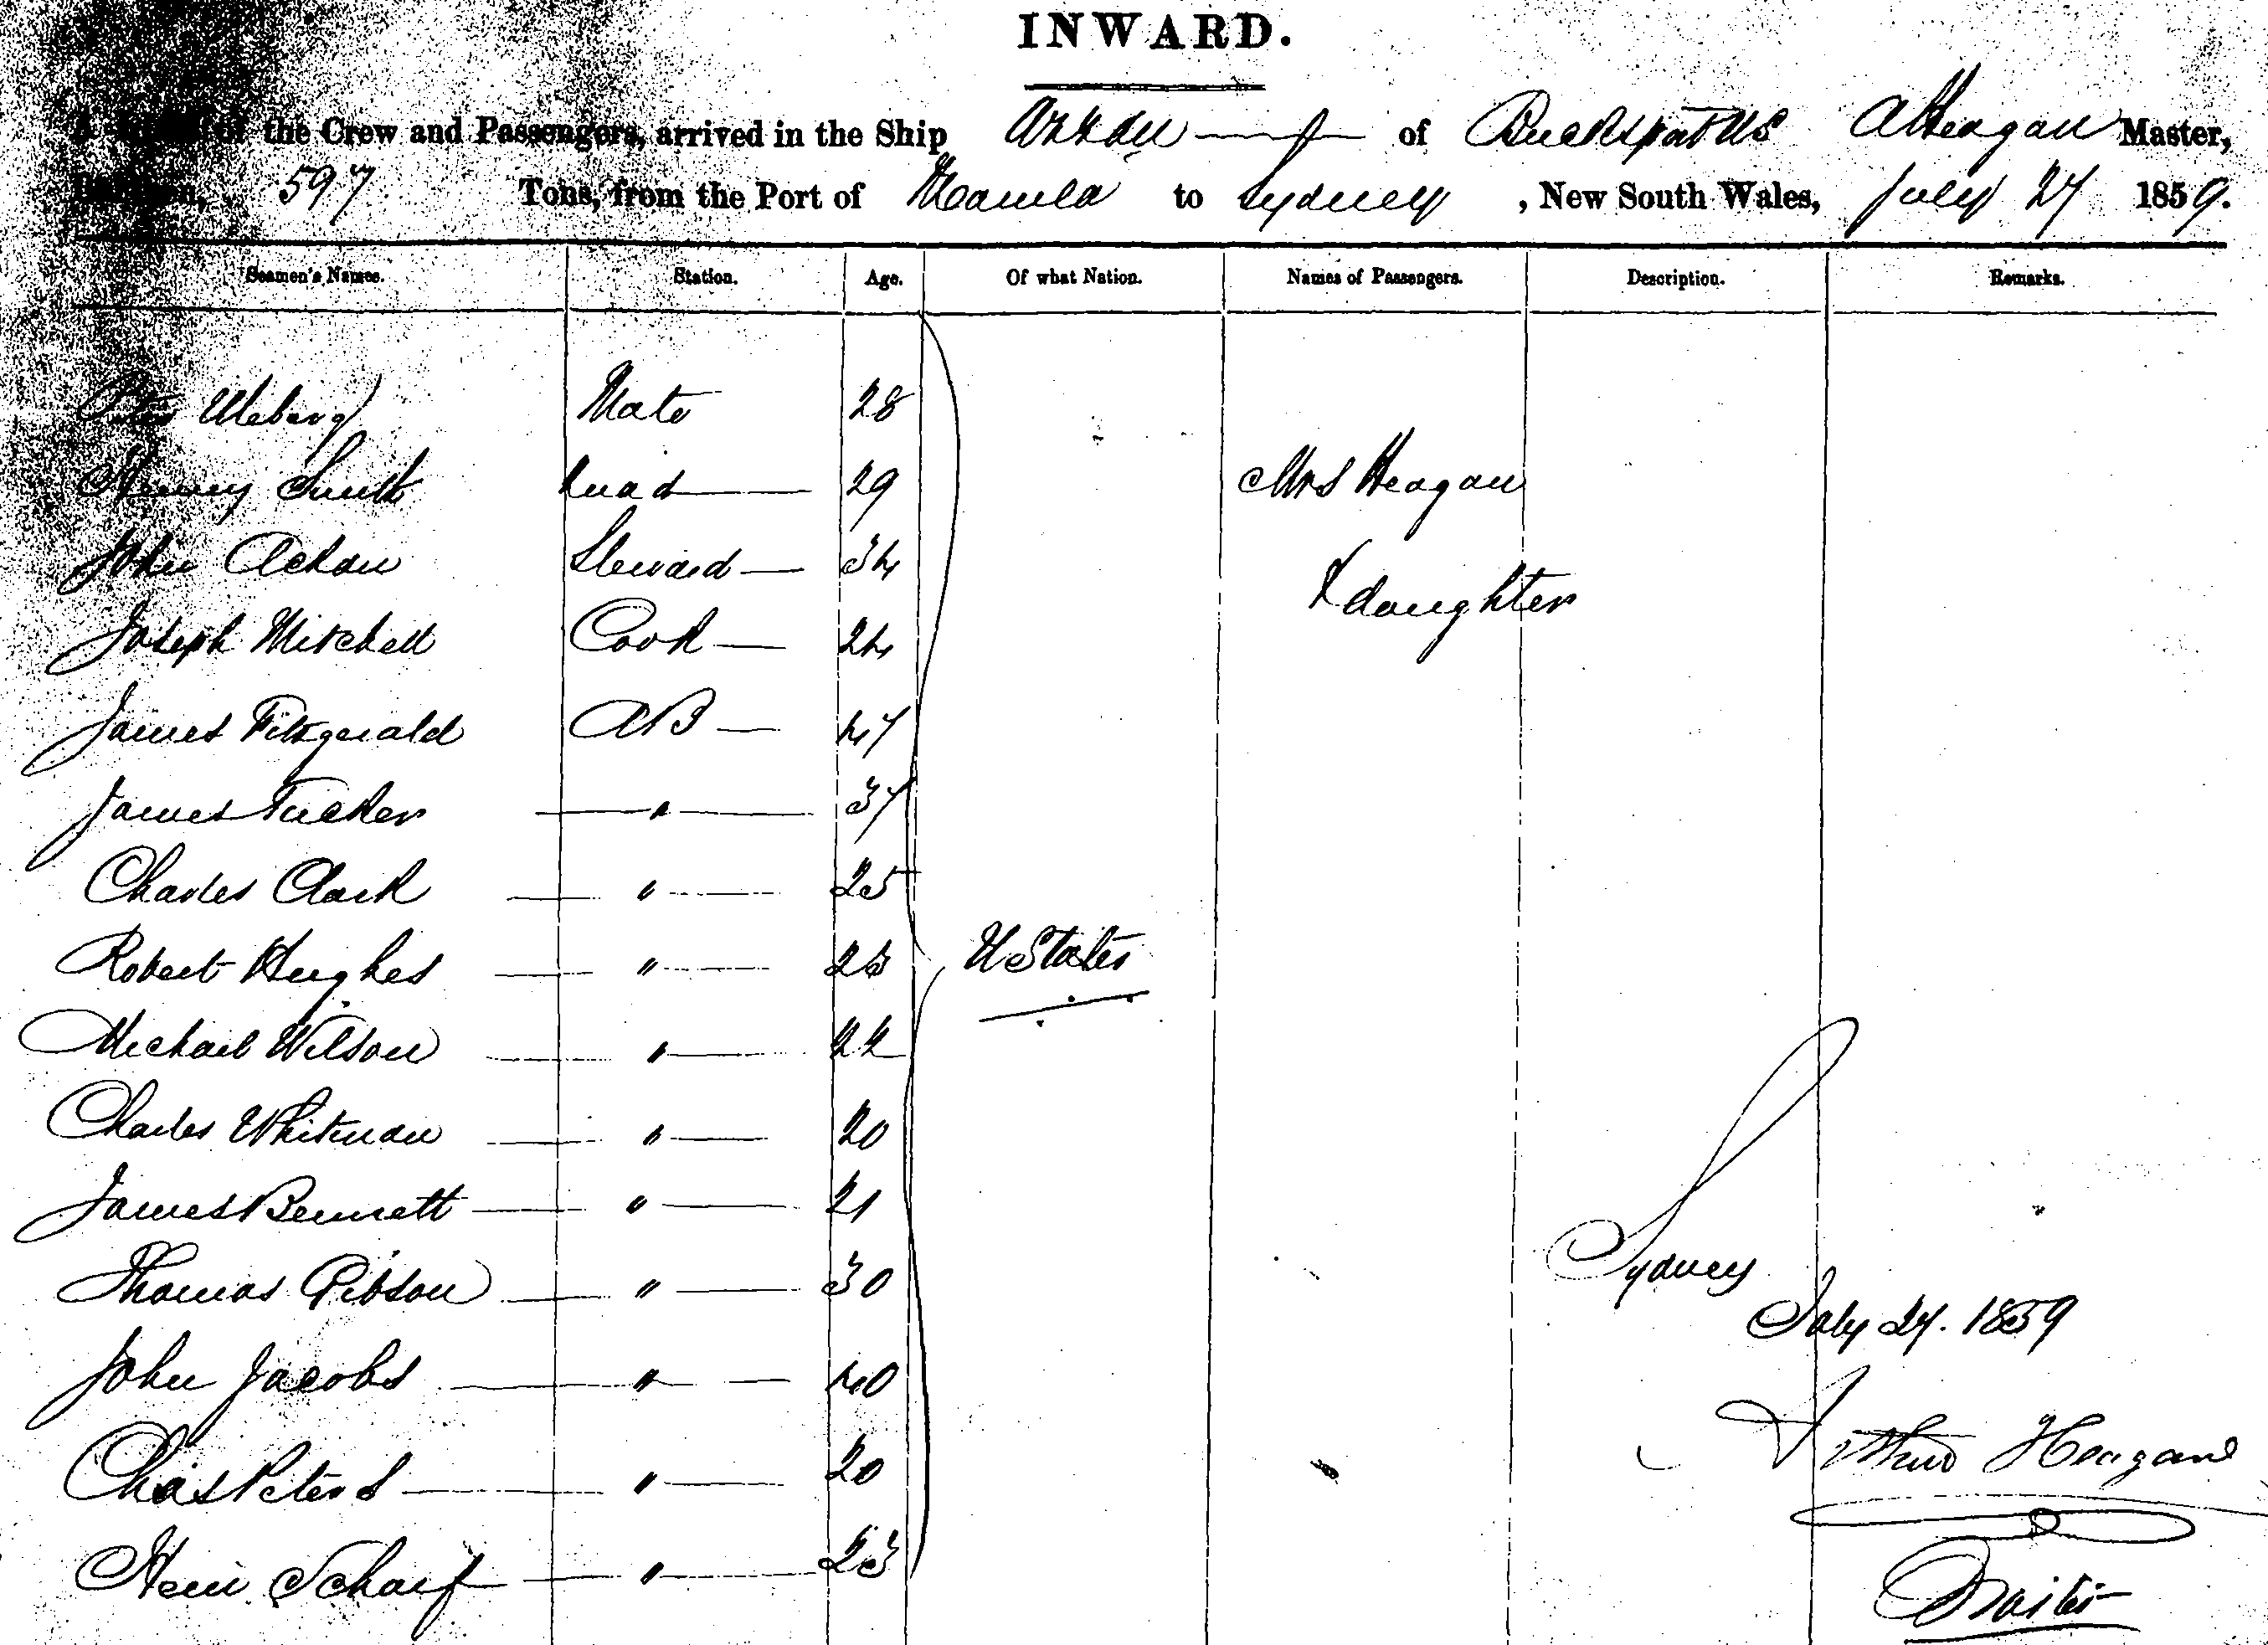 INWARD.
of the Crew and Passengers, arrived in the Ship of Bucksport US A Heagan Master,
Burthen, 597 Tons, from the Port of Manila to Sydney, New South Wales, July 27 1859.
Seamen's Names. Station. Age. Of what Nation. Names of Passengers. Description. Remarks.
Peter Mate 28
Henry Smith 29 Mrs Heagan
John Ackau Steward — 34 & daughter
Joseph Mitchell Cook — 24
James Fitzgerald AB — 47
James Tucker — " — 37
Charles Clark — " — 25
Robert Hughes — " — 23 U States
Michael Wilson — " — 22
Charles Whitman — " — 20
James Bennett — " — 21
Thomas Gibson — " — 30 Sydney
July 27. 1859
John Jacobs — " — 40
Chas Peters — " — 20 Heagan
Scharf — " — 23 Master